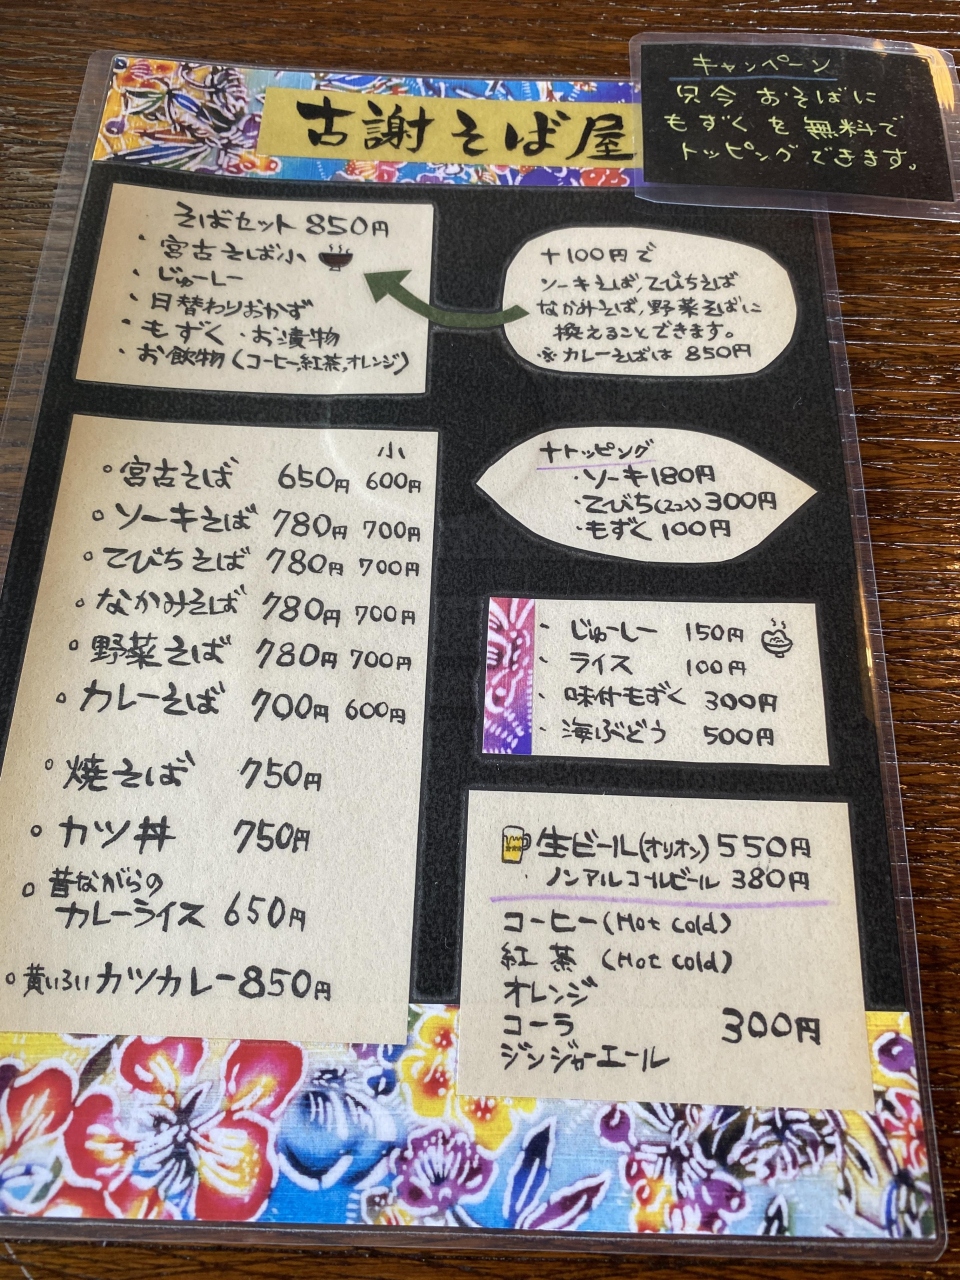 古謝そば屋
キャンペーン
只今 おそばに
もずくを無料で
トッピングできます。
そばセット 850円
・宮古そば小
・じゅーしー
・日替わりおかず
・もずく ・お漬物
・お飲物(コーヒー,紅茶,オレンジ)
+100円で
ソーキそば,てびちそば
なかみそば,野菜そばに
換えることできます。
※カレーそばは 850円
小
○宮古そば 650円 600円
○ソーキそば 780円 700円
○てびちそば 780円 700円
○なかみそば 780円 700円
○野菜そば 780円 700円
○カレーそば 700円 600円
○焼そば 750円
○カツ丼 750円
○昔ながらの
カレーライス 650円
○黄いろいカツカレー 850円
+トッピング
・ソーキ 180円
・てびち(2コ入) 300円
・もずく 100円
・じゅーしー 150円
・ライス 100円
・味付もずく 300円
・海ぶどう 500円
生ビール(オリオン) 550円
・ノンアルコールビール 380円
コーヒー(Hot Cold)
紅茶 (Hot Cold)
オレンジ
コーラ 300円
ジンジャーエール